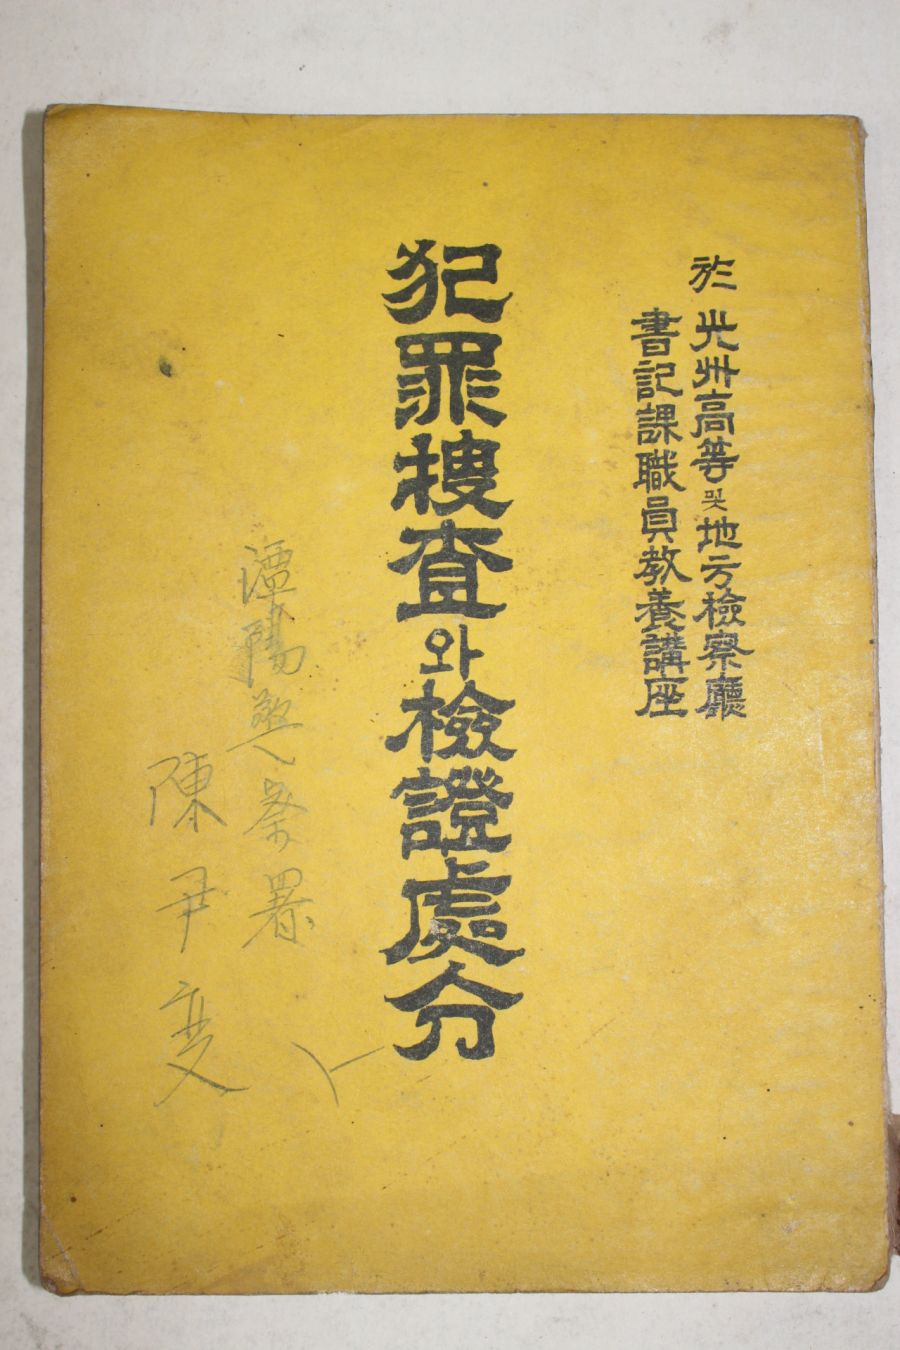 於 光州高等및地方檢察廳
書記課職員敎養講座
犯罪搜査와檢證處分
潭陽警察署
陳尹